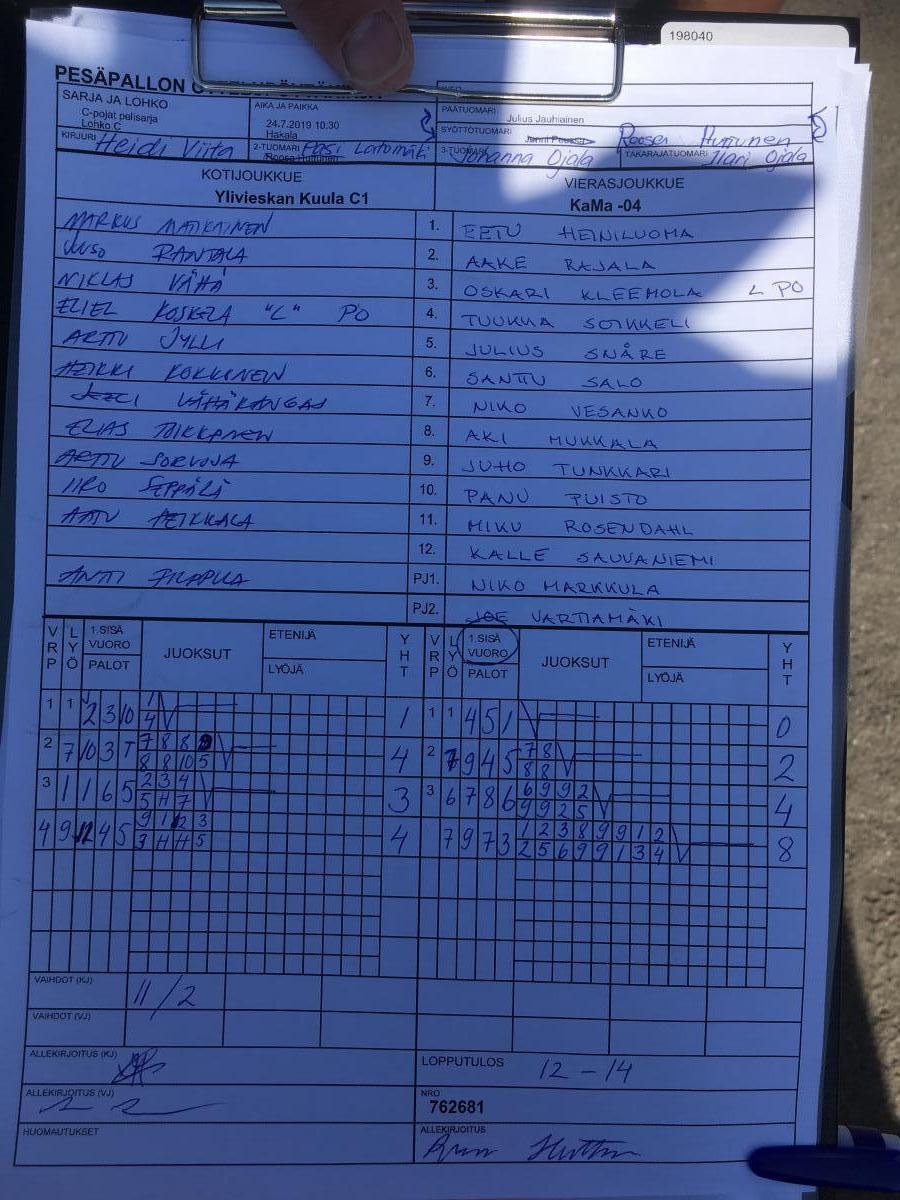 198040
PESÄPALLON
SARJA JA LOHKO
C-pojat pelisarja
Lohko C
AIKA JA PAIKKA
24.7.2019 10:30
Hakala
PÄÄTUOMARI
Julius Jauhiainen
SYÖTTÖTUOMARI
KIRJURI Heidi Viita
2-TUOMARI Pasi Latomäki
Roosa Huttunen
3-TUOMARI Johanna Ojala
TAKARAJATUOMARI Ilari Ojala
KOTIJOUKKUE
Ylivieskan Kuula C1
VIERASJOUKKUE
KaMa -04
MARKUS MATKAINEN 1. EETU HEINILUOMA
JUUSO RANTALA 2. AAKE RAJALA
NIKLAS VÄHÄ 3. OSKARI KLEEMOLA L PO
ELIEL KOSKELA "L" PO 4. TUUKKA SOIKKELI
ARTTU JYLLI 5. JULIUS SNÅRE
HEIKKI KOKKINEN 6. SANTTU SALO
VÄHÄKANGAS 7. NIKO VESANKO
ELIAS TOIKKANEN 8. AKI MUKKALA
ARTTU SORVOJA 9. JUHO TUNKKARI
IIRO SEPPÄLÄ 10. PANU PUISTO
AATU PEIKKALA 11. MIKU ROSENDAHL
12. KALLE SAUVANIEMI
ANTTI PJ1. NIKO MARKKULA
PJ2. JOE VARTIAMÄKI
VRP LYÖ 1.SISÄ VUORO PALOT JUOKSUT ETENIJÄ LYÖJÄ YHT VRP LYÖ 1.SISÄ VUORO PALOT JUOKSUT ETENIJÄ LYÖJÄ YHT
1 1 2 3 10 1 1 1 1 4 5 1 0
4
2 7 10 3 T 7 8 8 9 4 2 7 9 4 5 7 8 2
8 8 10 5 8 8
3 1 1 6 5 2 3 4 3 3 6 7 8 6 6 9 9 2 4
5 H 7 9 9 2 5
4 9 11 4 5 9 1 2 3 4 4 7 9 7 3 1 2 3 8 9 9 1 2 8
3 H H 5 2 5 6 9 9 1 3 4
VAIHDOT (KJ) 11/2
VAIHDOT (VJ)
ALLEKIRJOITUS (KJ)
LOPPUTULOS 12 - 14
ALLEKIRJOITUS (VJ)
NRO
762681
HUOMAUTUKSET
ALLEKIRJOITUS